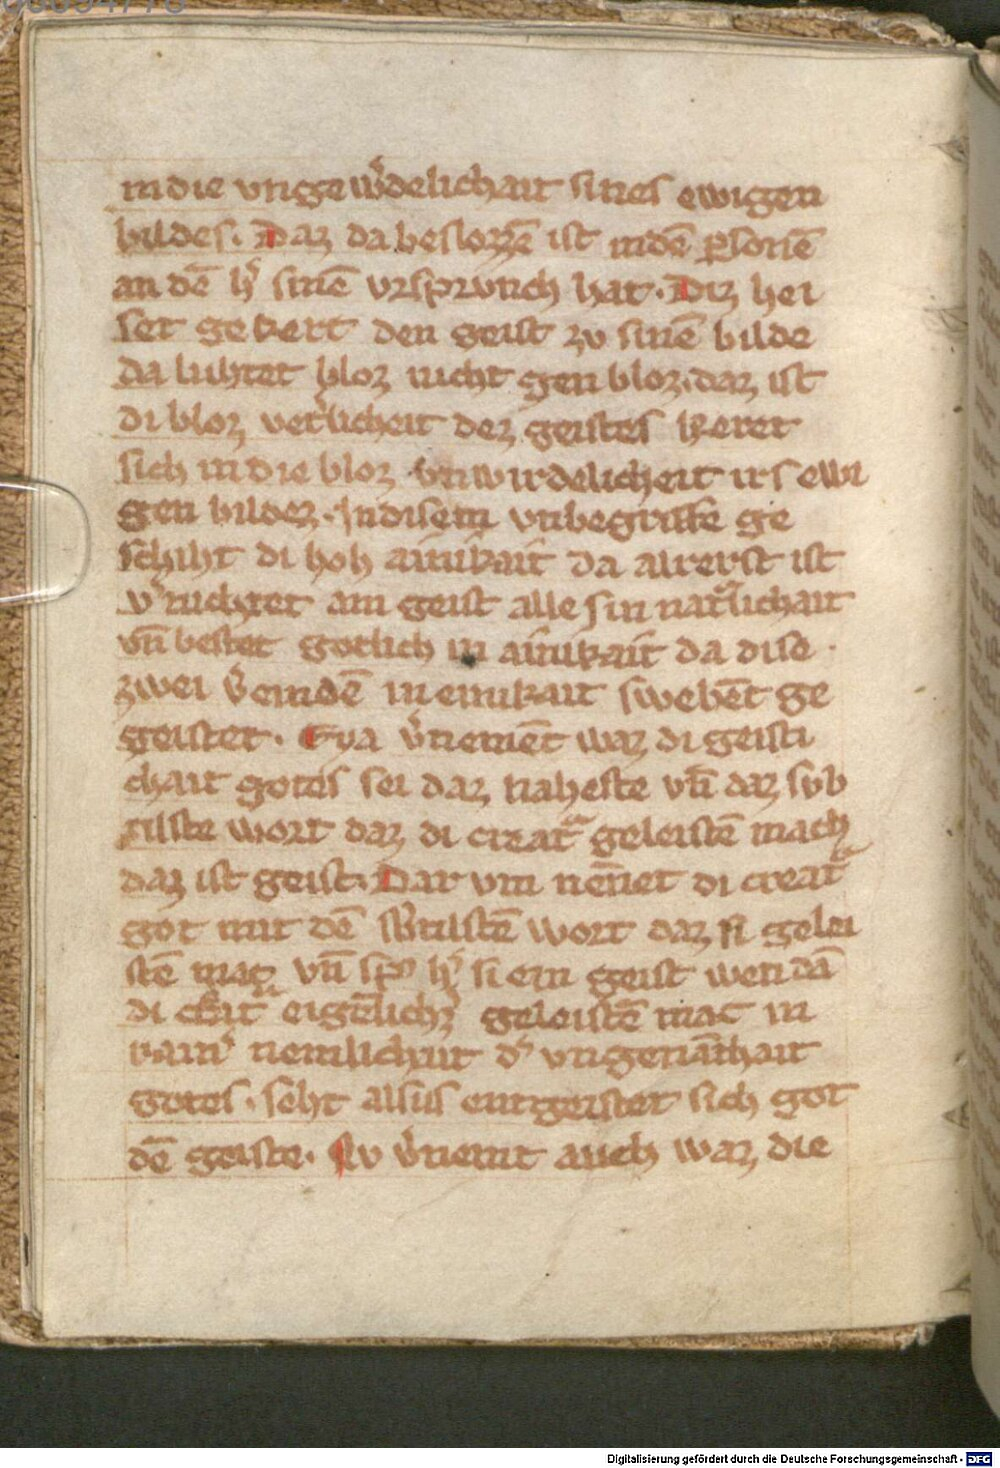 in die vnge wͤdelichait sines ewigen
bildes. Daz da beslozzē ist in dē ꝑsonē
an dē h̓ sinē vrsprvnch hat. Diz hei
set gekert den geist zv sinē bilde
da luhtet bloz nicht gen bloz. daz ist
di bloz vet̓licheit dez geistes keret
sich in die bloz vnwirdelicheit irs ewi
gen bildez. In disem vnbegriffē ge
schiht di hoh ainikait da alrerst ist
v̓nichtet am geist alle sin nat̾lichait
vn̄ bestet gotlich in ainikait da dise
zwei v̓eindē in einikait swebēt ge
geistet. Eya v̓nemēt waz di geisti
chait gotes sei daz naheste vn̄ daz svb
tilste wort daz di creat̾ geleistē mach
daz ist geist. Dar vm nēnet di creat̾
got mit dē svbtilstē wort daz si gelei
stē mag vn̄ spͥcht si ein geist wen dā
di eigēlich̓ geleistē mac in
kain̓ nemlichait d̓ vngenāthait
gotes. seht alsus entgeistet sich got
dē geiste. Nv v̓nemt auch waz die
Digitalisierung gefördert durch die Deutsche Forschungsgemeinschaft - DFG